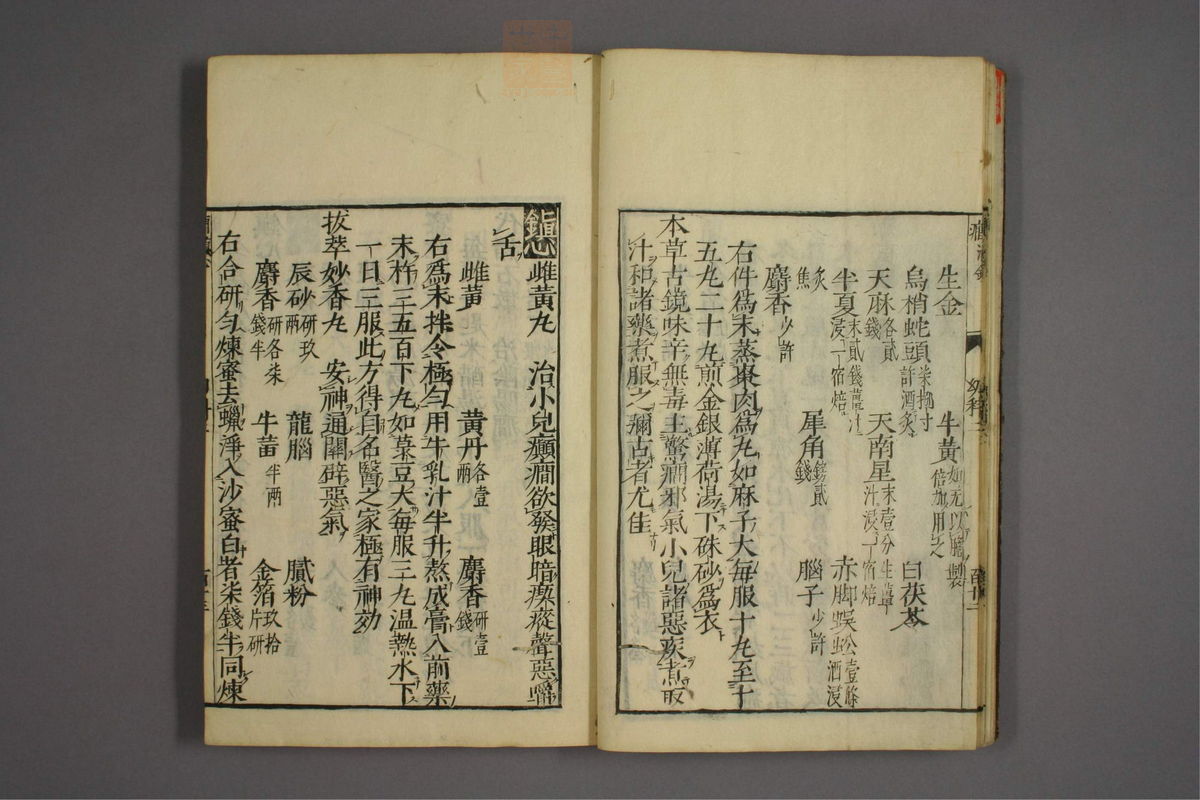 生金 牛黄如无以膽製倍加用之 白茯苓
烏梢蛇頭柒捌寸許酒炙
天麻各貳錢 天南星末壹分生薑汁浸一宿焙 赤脚蜈蚣壹條酒浸
炙焦
半夏末貳錢薑汁浸一宿焙 犀角鎊貳錢 腦子少許
麝香少許
右件為末蒸棗肉為丸如麻子大每服十丸至十
五丸二十丸煎金銀薄荷湯下硃砂為衣
本草古鏡味辛無毒主驚癇邪氣小兒諸惡疾煮取
汁和諸藥煮服之彌古者尤佳
雌黄丸 治小兒癲癇欲發眼暗瘈瘲聲惡嚼
舌
雌黄 黄丹各壹兩 麝香研壹錢
右為末拌令極勻用牛乳汁半升熬成膏入前藥
末杵三五百下丸如菉豆大每服三丸温熱水下
一日三服此方得自名醫之家極有神効
拔萃妙香丸 安神通關辟惡氣
辰砂研玖兩 龍腦 膩粉
麝香研各柒錢半 牛黄半兩 金箔玖拾片研
右合研勻煉蜜去蠟淨入沙蜜白者柒錢半同煉